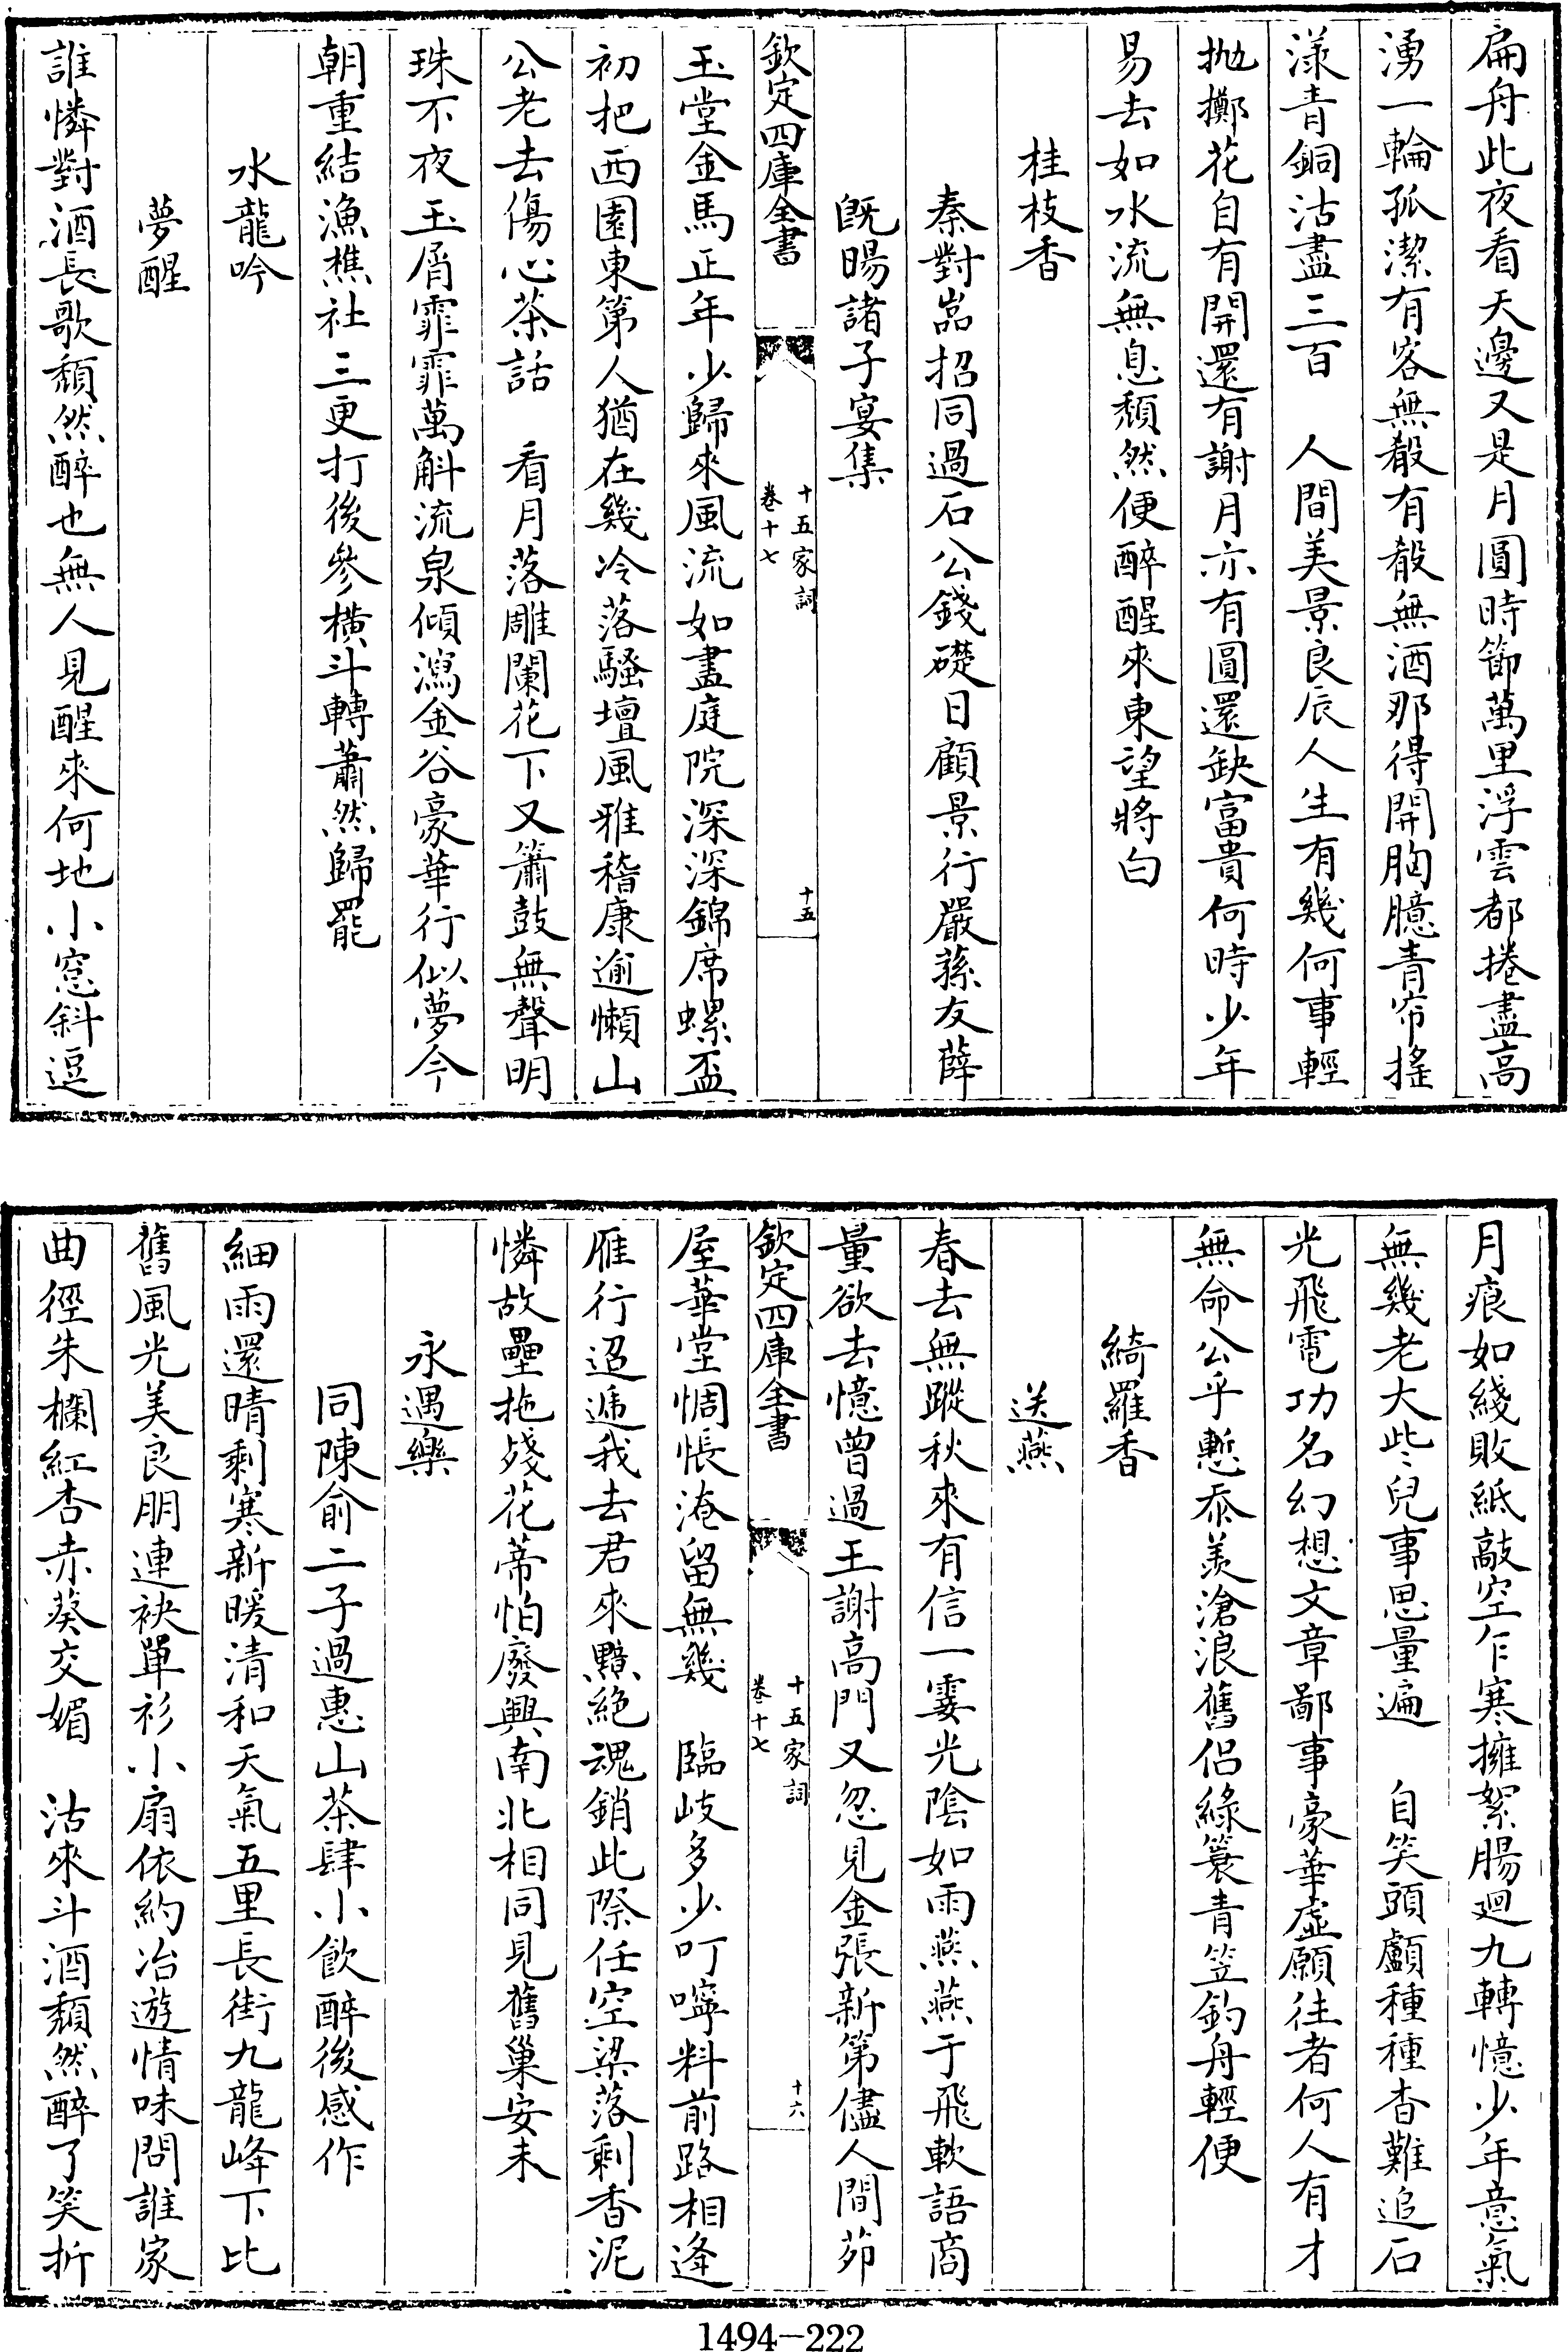 扁舟此夜看天邊又是月圓時節萬里浮雲都捲盡高
湧一輪孤潔有客無殽有殽無酒那得開胸臆青帘搖
漾青銅沽盡三百　人間美景良辰人生有幾何事輕
拋擲花自有開還有謝月亦有圓還缺富貴何時少年
易去如水流無息頹然便醉醒來東望將白
桂枝香
秦對巖招同過石公錢礎日顧景行嚴蓀友薛
既暘諸子宴集
欽定四庫全書
十五家詞
卷十七
十五
玉堂金馬正年少歸來風流如畫庭院深深錦席螺盃
初把西園東第人猶在幾冷落騷壇風雅稽康逾懶山
公老去傷心茶話　看月落雕闌花下又簫鼓無聲明
珠不夜玉屑霏霏萬斛流泉傾瀉金谷豪華行似夢今
朝重結漁樵社三更打後參橫斗轉蕭然歸罷
水龍吟
夢醒
誰憐對酒長歌頹然醉也無人見醒來何地小窓斜逗
月痕如綫敗紙敲空乍寒擁絮腸廻九轉憶少年意氣
無幾老大些些兒事思量遍　自笑頭顱種種杳難追石
光飛電功名幻想文章鄙事豪華虛願往者何人有才
無命公乎慙忝羨滄浪舊侶綠簑青笠釣舟輕便
綺羅香
送燕
春去無蹤秋來有信一霎光陰如雨燕燕于飛軟語商
量欲去憶曾過王謝高門又忽見金張新第儘人間茆
欽定四庫全書
十五家詞
卷十七
十六
屋華堂惆悵淹留無幾　臨岐多少叮嚀料前路相逢
雁行迢遞我去君來黯絕魂銷此際任空梁落剩香泥
憐故壘拖殘花蒂怕廢興南北相同見舊巢安未
永遇樂
同陳俞二子過惠山茶肆小飲醉後感作
細雨還晴剩寒新暖清和天氣五里長街九龍峰下比
舊風光美良朋連袂單衫小扇依約冶遊情味問誰家
曲徑朱欄紅杏赤葵交媚　沽來斗酒頹然醉了笑折
1494—222